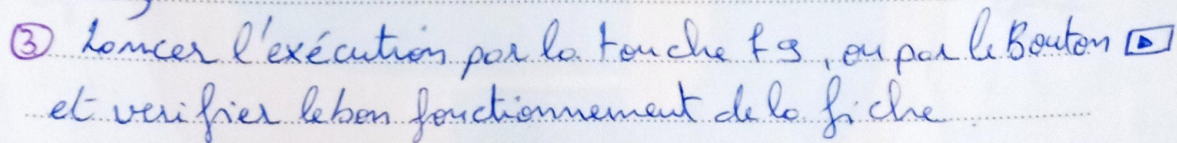 ③ Lancer l'exécution par la touche F9, ou par le Bouton ▷
et verifier le bon fonctionnement de la fiche